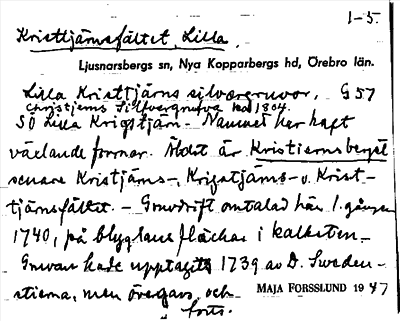 1-5.
Kristtjärnsfältet, Lilla.
Ljusnarsbergs sn, Nya Kopparbergs hd, Örebro län.
Lilla Kristtjärns silvergruvor. G57
Christierns Silfvergrufva ka 1804.
SÖ Lilla Kristtjärn. - Namnet har haft
växlande former. Äldst är Kristiernsberget
senare Kristjärns-, Kristjäms- o. Krist-
tjärnsfältet. - Gruvdrift omtalad här 1. gången
1740, på blyglans fläckar i kalksten.
Gruvan hade upptagits 1739 av D. Sweden-
stierna, men övergavs och
MAJA FORSSLUND 1947
forts.